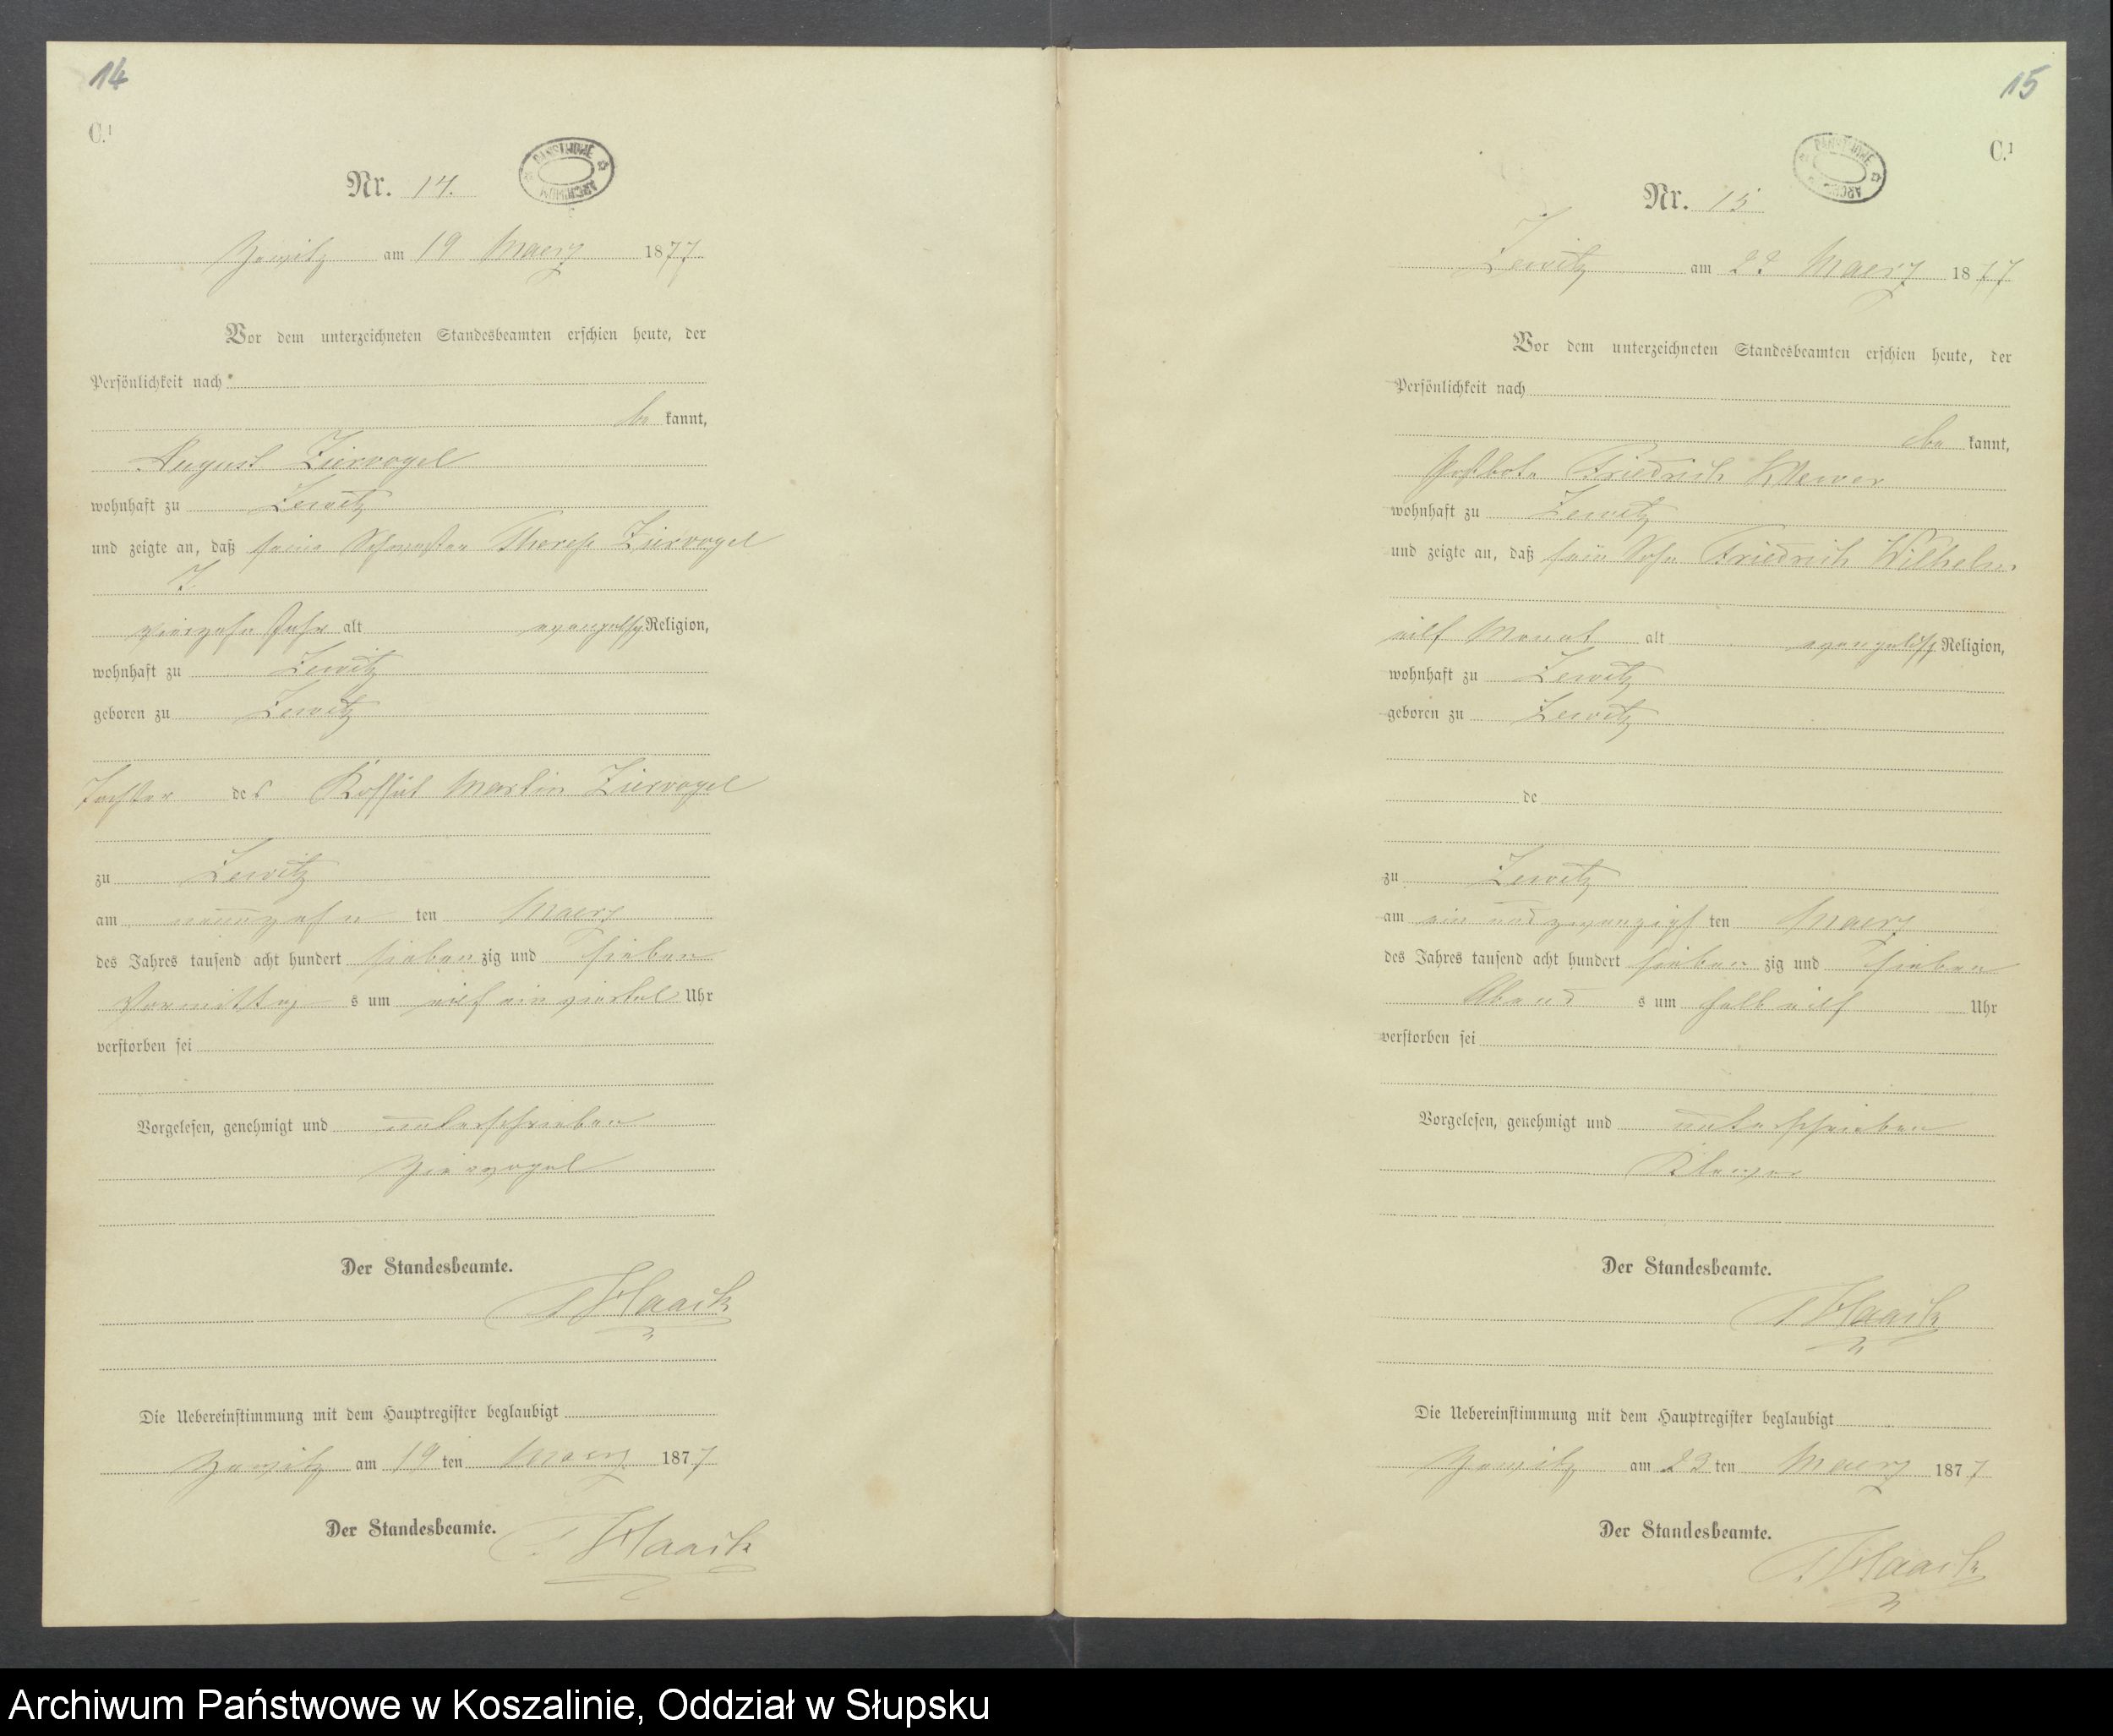 14
C.¹
PAŃSTWOWE ARCHIWUM
Nr. 14.
Zewitz am 19 Maerz 1877.
Vor dem unterzeichneten Standesbeamten erschien heute, der
Persönlichkeit nach
be kannt,
August Ziervogel
wohnhaft zu Zewitz
und zeigte an, daß seine Schwester Therese Ziervogel
vierzehn Jahr alt evangelisch Religion,
wohnhaft zu Zewitz
geboren zu Zewitz
Tochter des Martin Ziervogel
zu Zewitz
am neunzehn ten Maerz
des Jahres tausend acht hundert sieben zig und sieben
Vormittag s um eilf ein viertel Uhr
verstorben sei
Vorgelesen, genehmigt und unterschrieben
Ziervogel
Der Standesbeamte.
Haack
Die Uebereinstimmung mit dem Hauptregister beglaubigt
Zewitz am 19 ten Maerz 1877
Der Standesbeamte.
Haack
15
C.¹
PAŃSTWOWE ARCHIWUM
Nr. 15
Zewitz am 22 Maerz 1877
Vor dem unterzeichneten Standesbeamten erschien heute, der
Persönlichkeit nach
be kannt,
Postbote Friedrich Klewer
wohnhaft zu Zewitz
und zeigte an, daß sein Sohn Friedrich Wilhelm
eilf Monat alt evangelisch Religion,
wohnhaft zu Zewitz
geboren zu Zewitz
de
zu Zewitz
am ein und zwanzigst ten Maerz
des Jahres tausend acht hundert sieben zig und sieben
Abend s um halb eilf Uhr
verstorben sei
Vorgelesen, genehmigt und unterschrieben
Klewer
Der Standesbeamte.
Haack
Die Uebereinstimmung mit dem Hauptregister beglaubigt
Zewitz am 23 ten Maerz 1877
Der Standesbeamte.
Haack
Archiwum Państwowe w Koszalinie, Oddział w Słupsku